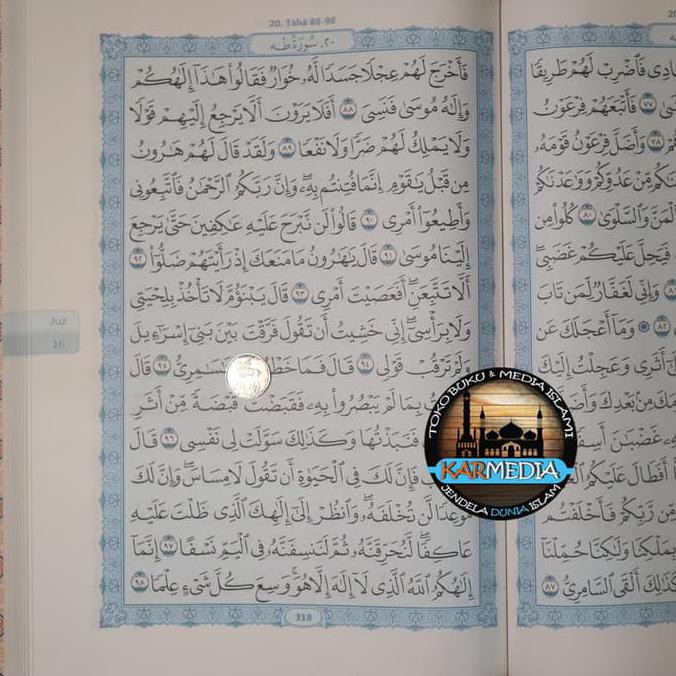 20. Tâhâ 88-98
٢٠. سُورَةُ طه
فَأَخْرَجَ لَهُمْ عِجْلًا جَسَدًا لَّهُۥ خُوَارٌ فَقَالُوا۟ هَٰذَآ إِلَٰهُكُمْ
وَإِلَٰهُ مُوسَىٰ فَنَسِىَ ٨٨ أَفَلَا يَرَوْنَ أَلَّا يَرْجِعُ إِلَيْهِمْ قَوْلًا
وَلَا يَمْلِكُ لَهُمْ ضَرًّا وَلَا نَفْعًا ٨٩ وَلَقَدْ قَالَ لَهُمْ هَٰرُونُ
مِن قَبْلُ يَٰقَوْمِ إِنَّمَا فُتِنتُم بِهِۦۖ وَإِنَّ رَبَّكُمُ ٱلرَّحْمَٰنُ فَٱتَّبِعُونِى
وَأَطِيعُوٓا۟ أَمْرِى ٩٠ قَالُوا۟ لَن نَّبْرَحَ عَلَيْهِ عَٰكِفِينَ حَتَّىٰ يَرْجِعَ
إِلَيْنَا مُوسَىٰ ٩١ قَالَ يَٰهَٰرُونُ مَا مَنَعَكَ إِذْ رَأَيْتَهُمْ ضَلُّوٓا۟ ٩٢
أَلَّا تَتَّبِعَنِۖ أَفَعَصَيْتَ أَمْرِى ٩٣ قَالَ يَبْنَؤُمَّ لَا تَأْخُذْ بِلِحْيَتِى
وَلَا بِرَأْسِىٓۖ إِنِّى خَشِيتُ أَن تَقُولَ فَرَّقْتَ بَيْنَ بَنِىٓ إِسْرَٰٓءِيلَ
وَلَمْ تَرْقُبْ قَوْلِى ٩٤ قَالَ فَمَا ٩٥ قَالَ
بِمَا لَمْ يَبْصُرُوا۟ بِهِۦ فَقَبَضْتُ قَبْضَةً مِّنْ أَثَرِ
فَنَبَذْتُهَا وَكَذَٰلِكَ سَوَّلَتْ لِى نَفْسِى ٩٦ قَالَ
فَإِنَّ لَكَ فِى ٱلْحَيَوٰةِ أَن تَقُولَ لَا مِسَاسَۖ وَإِنَّ لَكَ
مَوْعِدًا لَّن تُخْلَفَهُۥۖ وَٱنظُرْ إِلَىٰٓ إِلَٰهِكَ ٱلَّذِى ظَلْتَ عَلَيْهِ
عَاكِفًاۖ لَّنُحَرِّقَنَّهُۥ ثُمَّ لَنَنسِفَنَّهُۥ فِى ٱلْيَمِّ نَسْفًا ٩٧ إِنَّمَآ
إِلَٰهُكُمُ ٱللَّهُ ٱلَّذِى لَآ إِلَٰهَ إِلَّا هُوَۚ وَسِعَ كُلَّ شَىْءٍ عِلْمًا ٩٨
318
Juz
16
فَٱضْرِبْ لَهُمْ طَرِيقًا
٧٧ فَأَتْبَعَهُمْ فِرْعَوْنُ
٧٨ وَأَضَلَّ فِرْعَوْنُ قَوْمَهُۥ
مِّنْ عَدُوِّكُمْ وَوَٰعَدْنَٰكُمْ
ٱلْمَنَّ وَٱلسَّلْوَىٰ ٨٠ كُلُوا۟ مِن
فَيَحِلَّ عَلَيْكُمْ غَضَبِىۖ
وَإِنِّى لَغَفَّارٌ لِّمَن تَابَ
٨٢ وَمَآ أَعْجَلَكَ عَن
أَثَرِى وَعَجِلْتُ إِلَيْكَ
مِنۢ بَعْدِكَ
غَضْبَٰنَ
أَفَطَالَ عَلَيْكُمُ
مِّن رَّبِّكُمْ فَأَخْلَفْتُم
بِمَلْكِنَا وَلَٰكِنَّا حُمِّلْنَآ
فَكَذَٰلِكَ أَلْقَى ٱلسَّامِرِىُّ ٨٧
TOKO BUKU & MEDIA ISLAMI
KARMEDIA
JENDELA DUNIA ISLAM